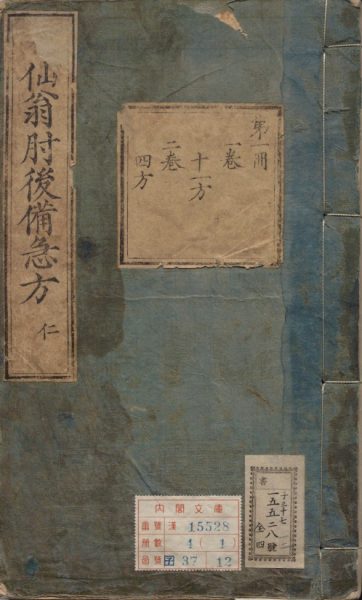 仙翁肘後備急方 仁
第一冊
一卷
十一方
二卷
四方
內閣文庫
番號 漢 15528
冊數 4 (1)
函號 子 37 12
書
子三十七
一五五二八號
全四